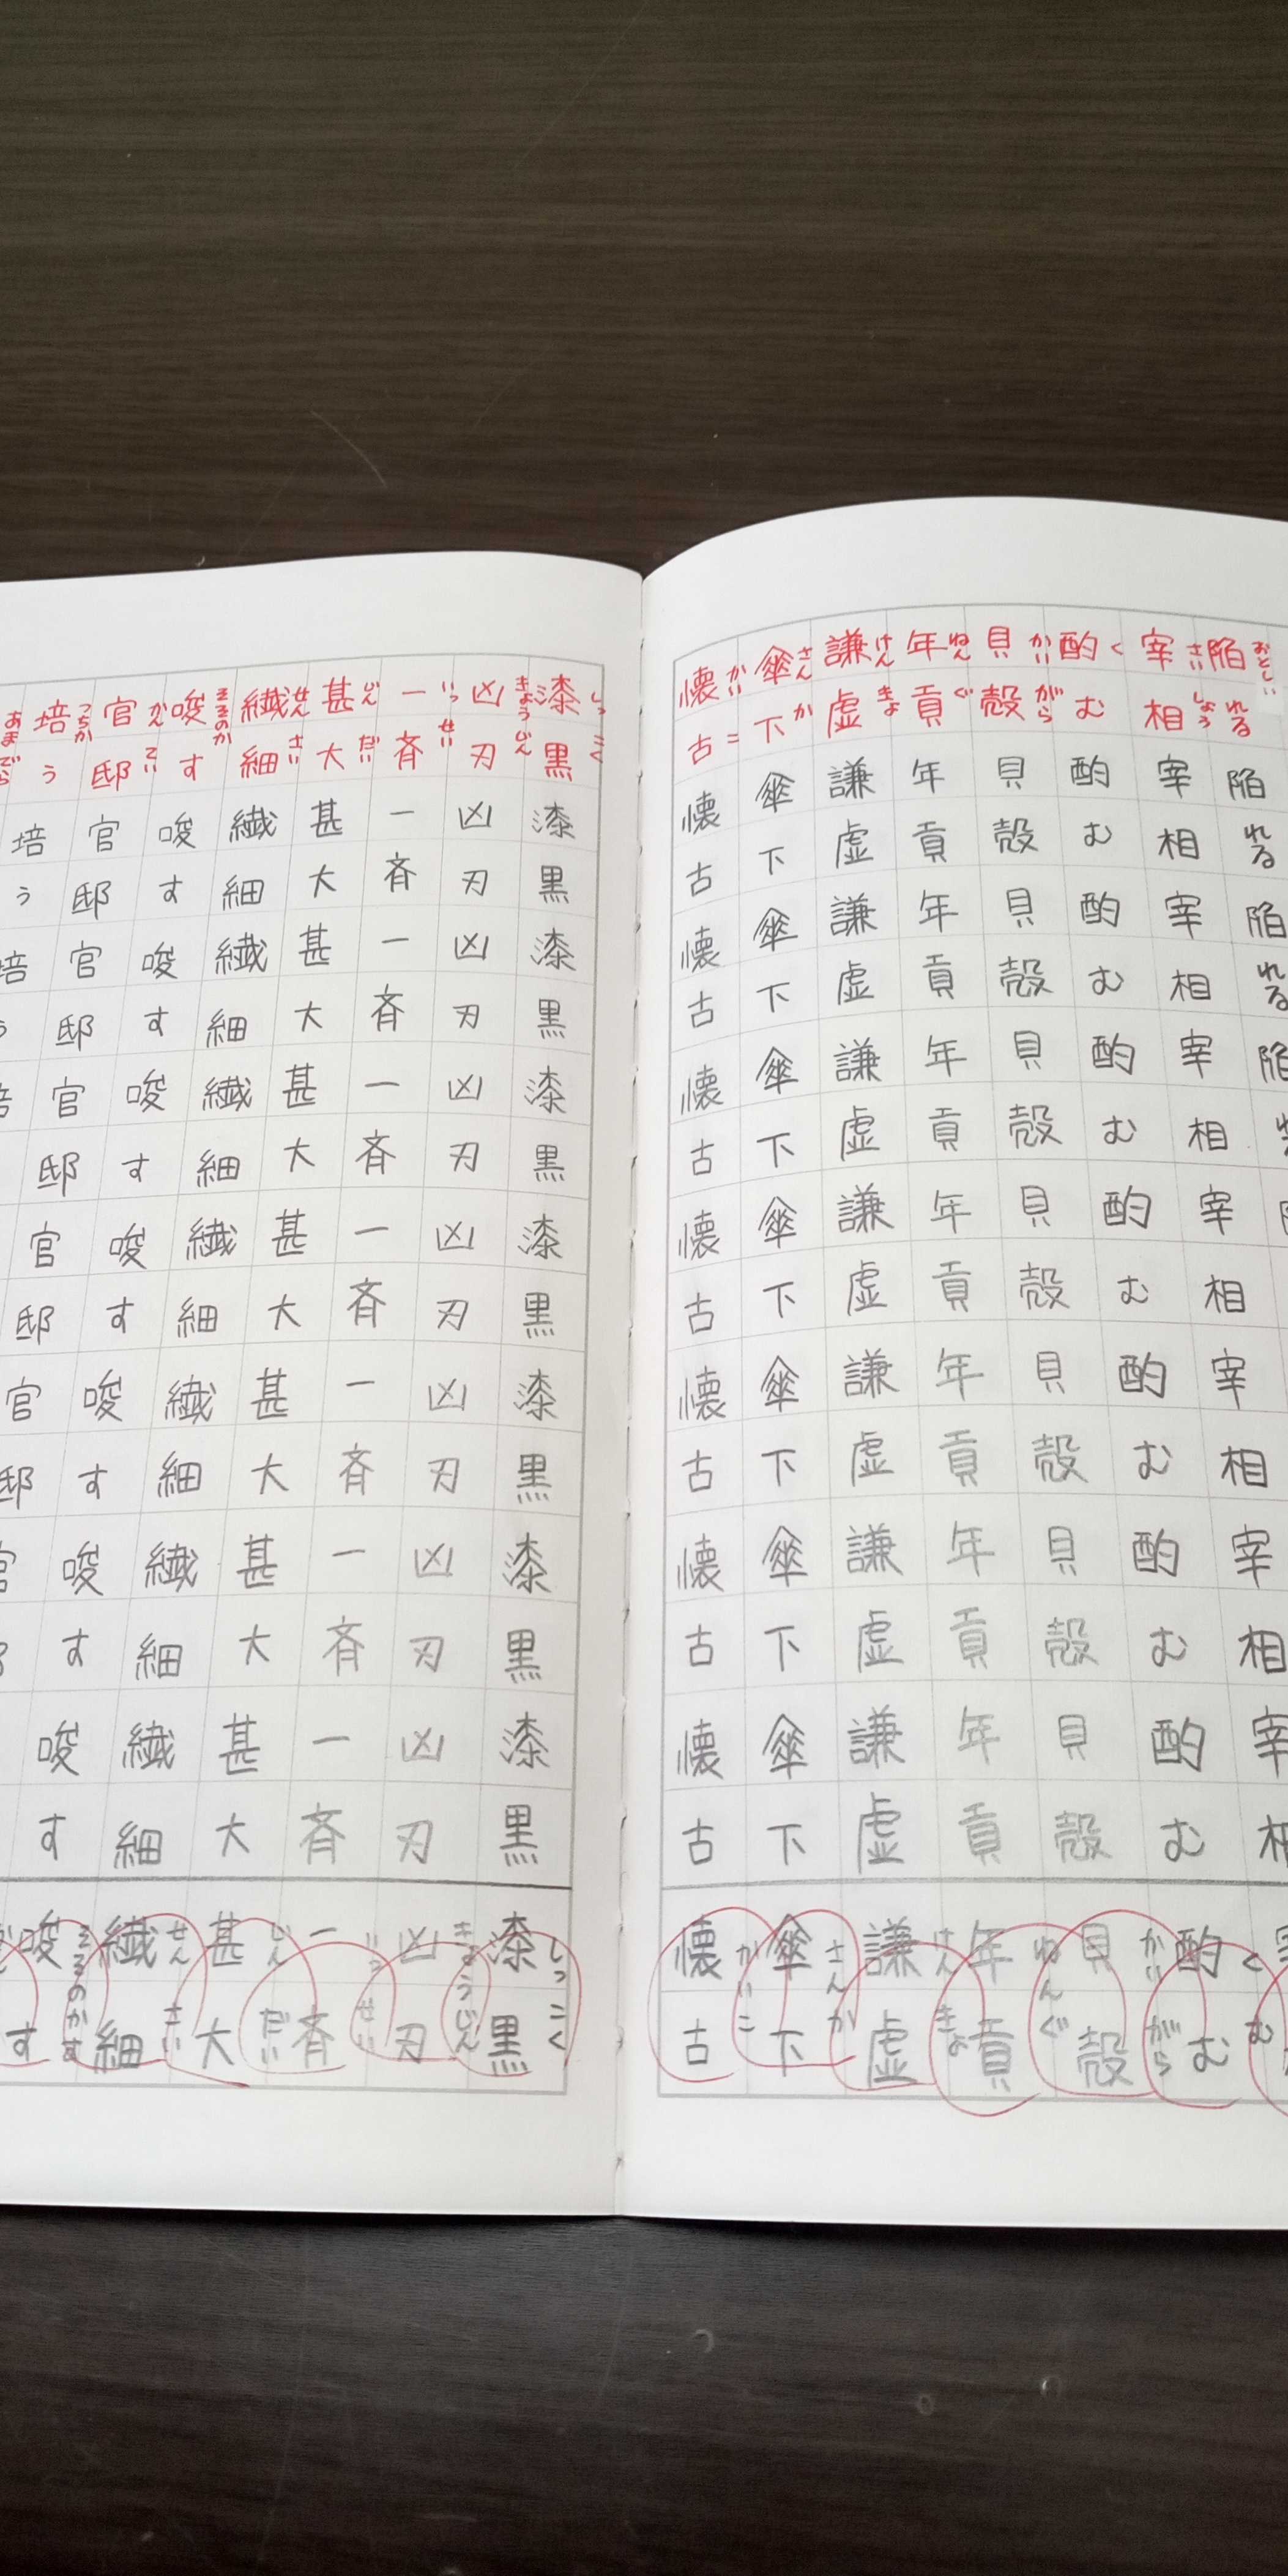 おとしいれる
陥れる陥れる陥れる陥
さいしょう
宰相宰相宰相宰相宰相宰相宰相宰
くむ
酌む酌む酌む酌む酌む酌む酌む酌む酌む
くむ
かいがら
貝殻貝殻貝殻貝殻貝殻貝殻貝殻貝殻貝殻
かいがら
ねんぐ
年貢年貢年貢年貢年貢年貢年貢年貢年貢
ねんぐ
けんきょ
謙虚謙虚謙虚謙虚謙虚謙虚謙虚謙虚謙虚
けんきょ
さんか
傘下傘下傘下傘下傘下傘下傘下傘下傘下
さんか
かいこ
懐古懐古懐古懐古懐古懐古懐古懐古懐古
かいこ
しっこく
漆黒漆黒漆黒漆黒漆黒漆黒漆黒漆黒漆黒
しっこく
きょうじん
凶刃凶刃凶刃凶刃凶刃凶刃凶刃凶刃凶刃
きょうじん
いっせい
一斉一斉一斉一斉一斉一斉一斉一斉一斉
いっせい
じんだい
甚大甚大甚大甚大甚大甚大甚大甚大甚大
じんだい
せんさい
繊細繊細繊細繊細繊細繊細繊細繊細繊細
せんさい
そそのかす
唆す唆す唆す唆す唆す唆す唆す唆す唆す
そそのかす
かんてい
官邸官邸官邸官邸官邸官邸
つちかう
培う培う培
あまでら